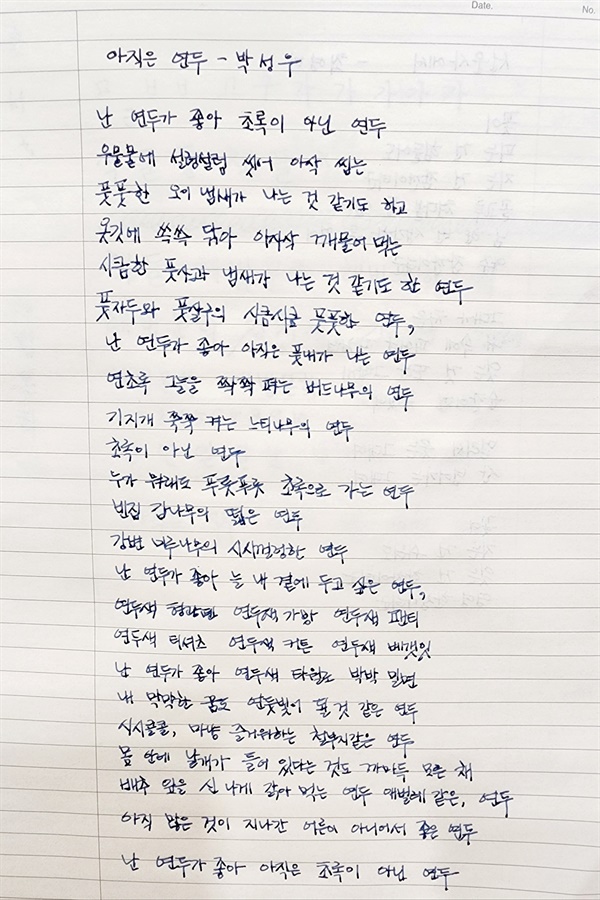 Date.
No.
아직은 연두 - 박성우
난 연두가 좋아 초록이 아닌 연두
우물물에 설렁설렁 씻어 아삭 씹는
풋풋한 오이 냄새가 나는 것 같기도 하고
옷깃에 쓱쓱 닦아 아사삭 깨물어 먹는
시큼한 풋사과 냄새가 나는 것 같기도 한 연두
풋자두와 풋살구의 시큼시큼 풋풋한 연두,
난 연두가 좋아 아직은 풋내가 나는 연두
연초록 그늘을 쫙쫙 펴는 버드나무의 연두
기지개 쭉쭉 켜는 느티나무의 연두
초록이 아닌 연두
누가 뭐래도 푸릇푸릇 초록으로 가는 연두
빈집 감나무의 떫은 연두
강변 미루나무의 시시껄렁한 연두
난 연두가 좋아 늘 내 곁에 두고 싶은 연두,
연두색 형광펜 연두색 가방 연두색 팬티
연두색 티셔츠 연두색 커튼 연두색 베갯잇
난 연두가 좋아 연두색 타월로 박박 밀면
내 막막한 꿈도 연둣빛이 될 것 같은 연두
시시콜콜, 마냥 즐거워하는 철부지 같은 연두
몸 안에 날개가 들어 있다는 것도 까마득 모른 채
배추 잎을 신나게 갉아 먹는 연두 애벌레 같은, 연두
아직 많은 것이 지나간 어른이 아니어서 좋은 연두
난 연두가 좋아 아직은 초록이 아닌 연두